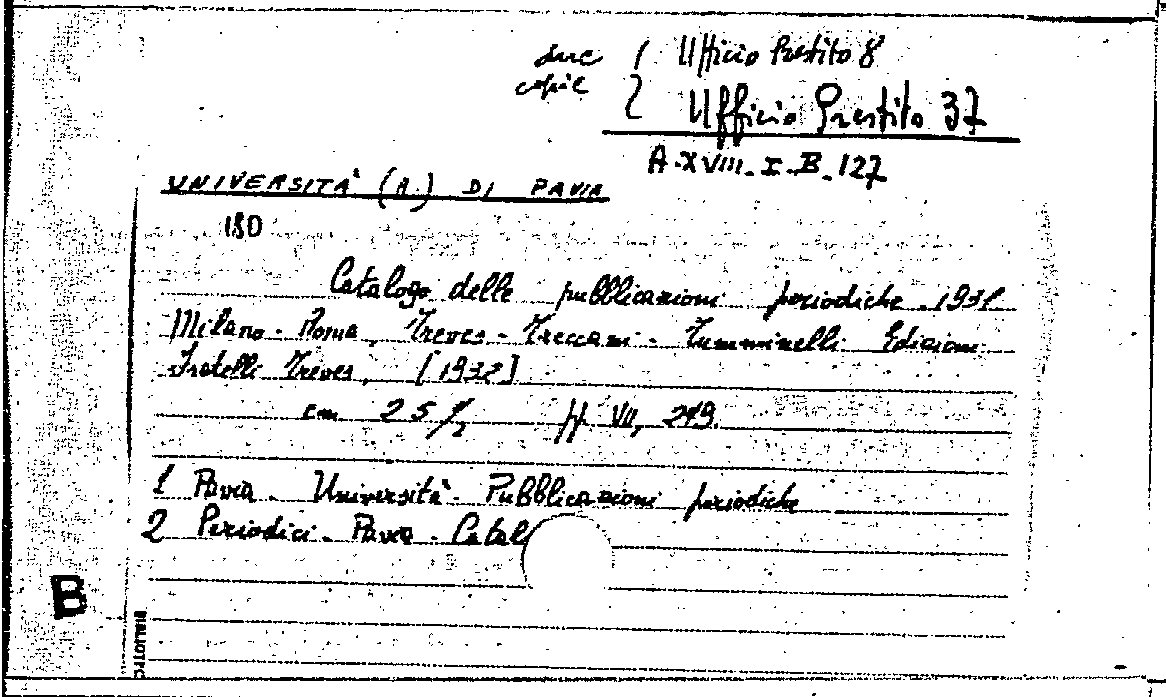 due copie 1 Ufficio Prestito 8
2 Ufficio Prestito 37
A.XVIII.I.B.127
UNIVERSITA' (R.) DI PAVIA
180
Catalogo delle pubblicazioni periodiche. 1931
Milano - Roma, Treves - Treccani - Tumminelli Edizioni
Fratelli Treves, [1932]
cm 25 1/2 pp VII, 219.
1 Pavia. Università - Pubblicazioni periodiche
2 Periodici - Pavia - Catal
B
BIBLIOTEC